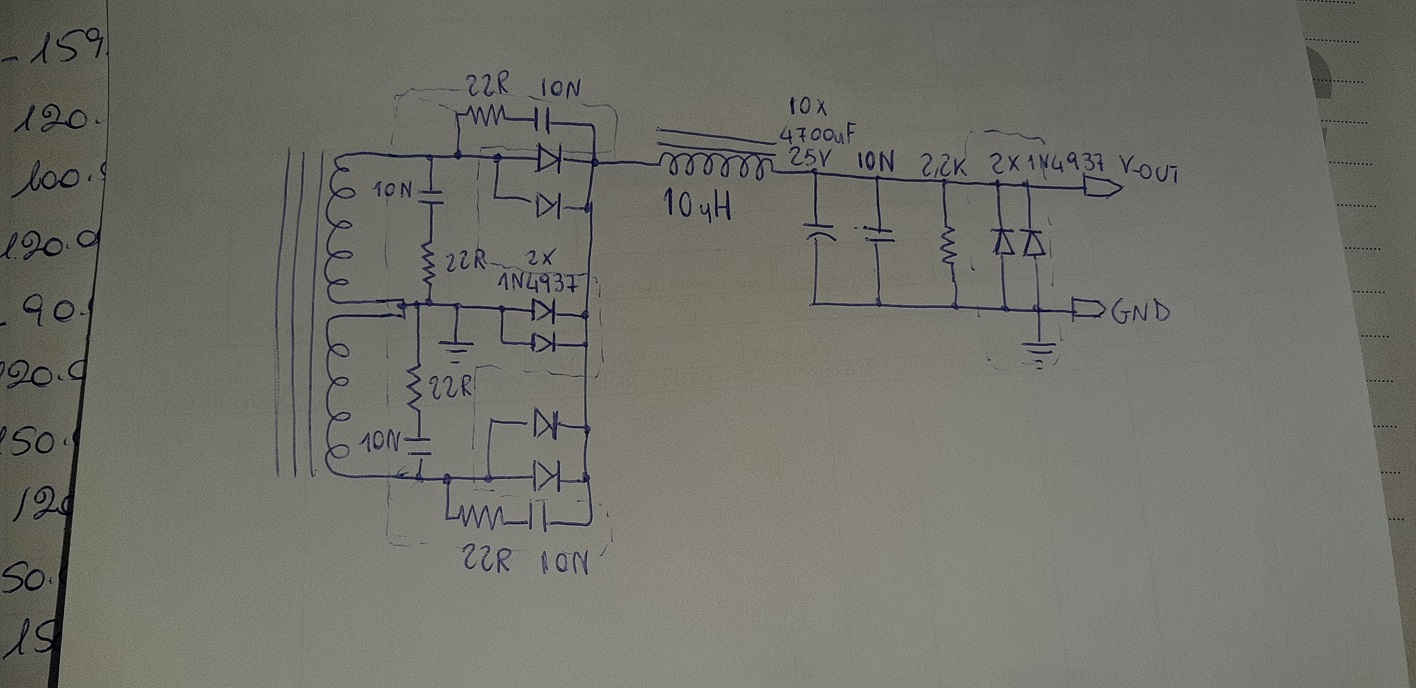 -159
120.
100.
120.0
-90.
50.
120
50.
15
22R 10N
10N
22R
2X
1N4937
22R
10N
22R 10N
10X
4700uF
25V 10N 2,2K 2X1N4937 V-OUT
10uH
GND